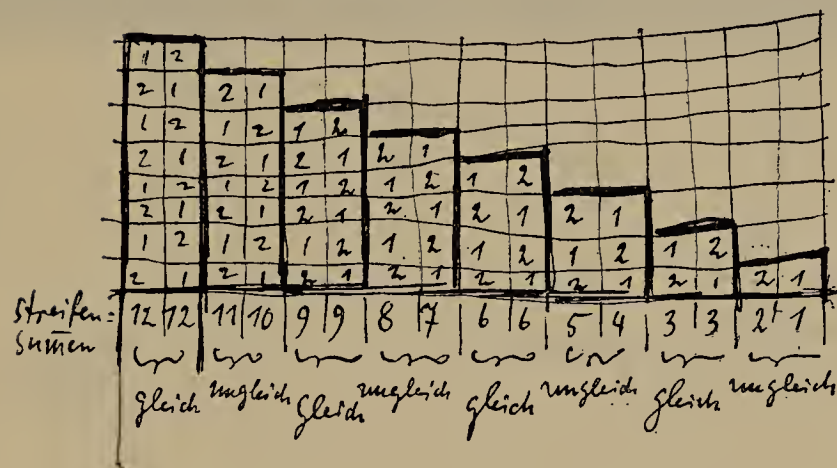 1 2
2 1 2 1
1 2 1 2 1 2
2 1 2 1 2 1 2 1
1 2 1 2 1 2 1 2 1 2
2 1 2 1 2 1 2 1 2 1 2 1
1 2 1 2 1 2 1 2 1 2 1 2 1 2
2 1 2 1 2 1 2 1 2 1 2 1 2 1 2 1
Streifen= 12 12 11 10 9 9 8 7 6 6 5 4 3 3 2 1
Sum̄en
gleich ungleich gleich ungleich gleich ungleich gleich ungleich